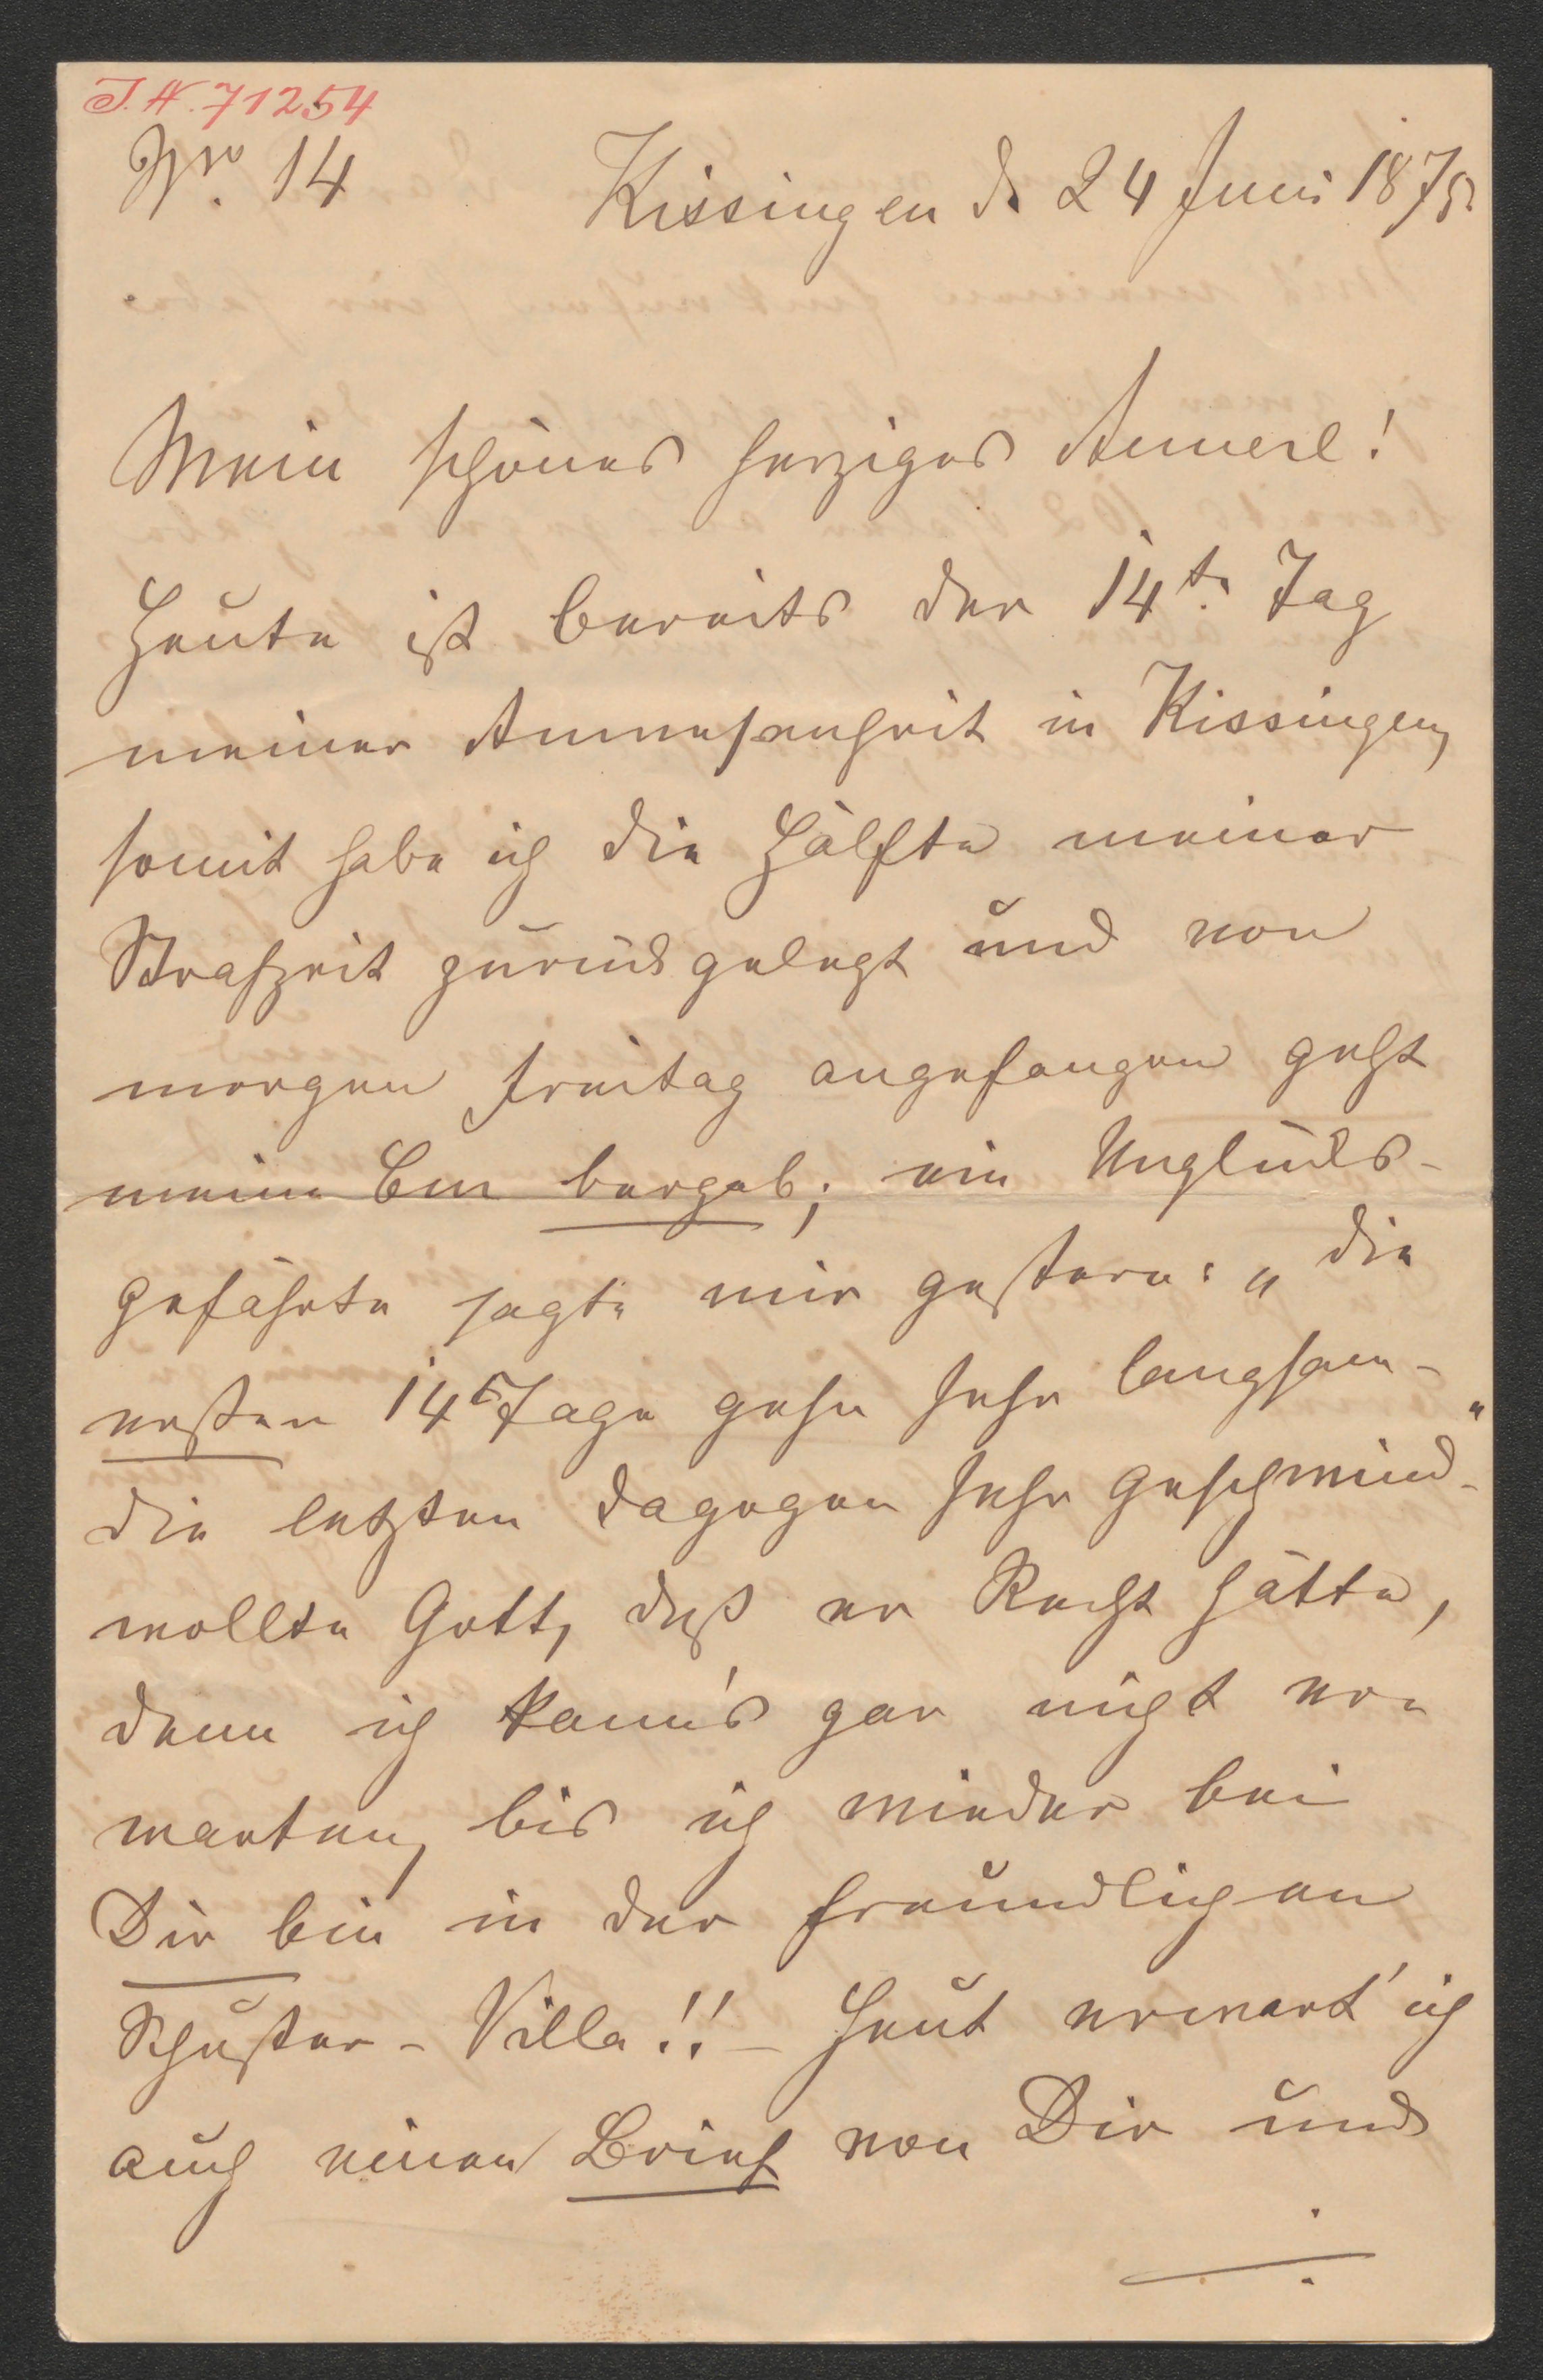 I.N. 71254
Nro. 14
Kissingen d. 24 Juni 1875.
Mein schönes herziges Annerl!
Heute ist bereits der 14te. Tag
meiner Anwesenheit in Kissingen,
somit habe ich die Hälfte meiner
Strafzeit zurückgelegt und von
morgen Freitag angefangen geht
meine Cur bergab; ein Unglücks-
gefährte sagte mir gestern: „die
ersten 14 Tage gehn sehr langsam-
die letzten dagegen sehr geschwind-“
wollte Gott, daß er Recht hätte,
denn ich kann's gar nicht er-
warten, bis ich wieder bei
Dir bin in der freundlichen
Schuster-Villa!! – Heut erwart' ich
auch einen Brief von Dir und